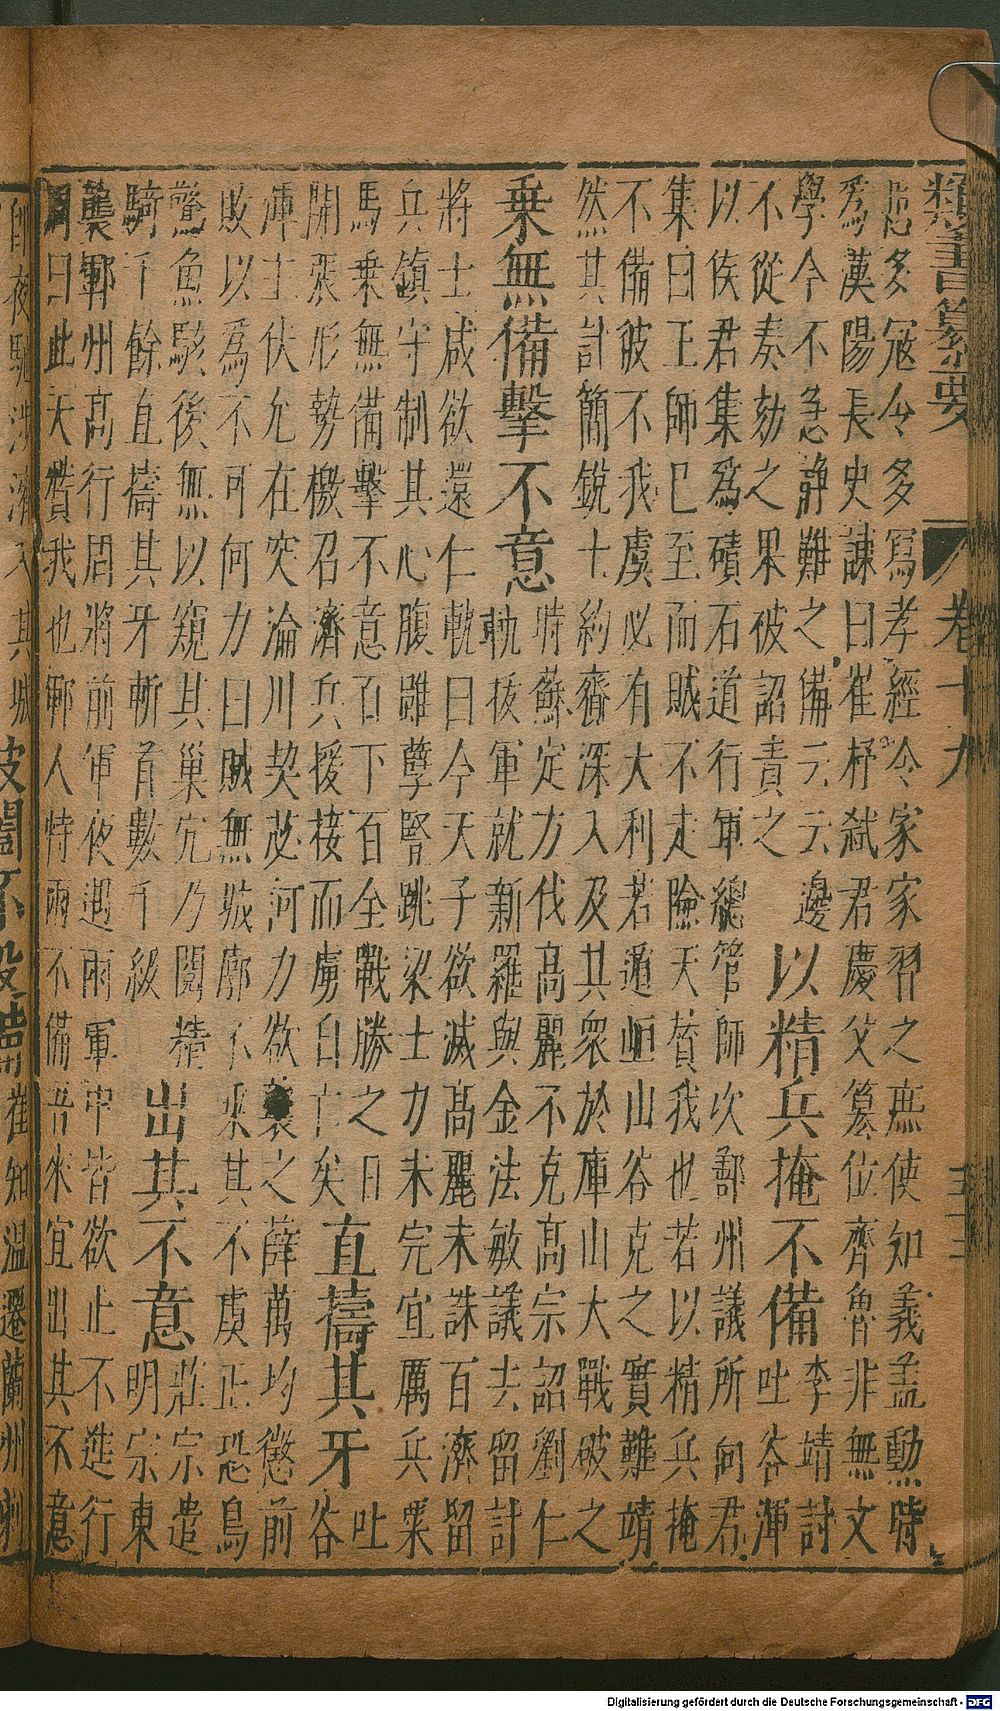 類書纂要 卷十九
患多寇令多寫孝經令家家習之庶使知義蓋勲時
爲漢陽長史諫曰崔杼弒君慶父篡位齊魯非無文
學今不急靜難之備云云邊
不從奏劾之果被詔責之
以精兵掩不備
李靖討
吐谷渾
以侯君集爲磧石道行軍總管師次鄯州議所向君
集曰王師已至而賊不走險天贊我也若以精兵掩
不備彼不我虞必有大利若遁岨山谷克之實難靖
然其計簡銳士約齎深入及其衆於庫山大戰破之
乗無備擊不意
時蘇定方伐高麗不克高宗詔劉仁
軌援軍就新羅與金法敏議去留計
將士咸欲還仁軌曰今天子欲滅高麗未誅百濟留
兵鎮守制其心腹雖孽竪跳梁士力未完宜厲兵粟
馬乗無備擊不意百下百全戰勝之日
開張形勢檄召濟兵援接而虜自亡矣
直擣其牙
吐
谷
渾主伏允在突淪川契苾河力欲襲之薛萬均懲前
敗以爲不可何力曰賊無城廓不乘其不虞正恐鳥
驚魚駭後無以窺其巢穴乃閱精
騎千餘直擣其牙斬首數千級
出其不意
莊宗遣
明宗東
襲鄆州高行周將前軍夜遇雨軍中皆欲止不進行
周曰此天贊我也鄆人恃雨不備吾來宜出其不意
即夜馳涉濟入其城
崔知温遷蘭州刺